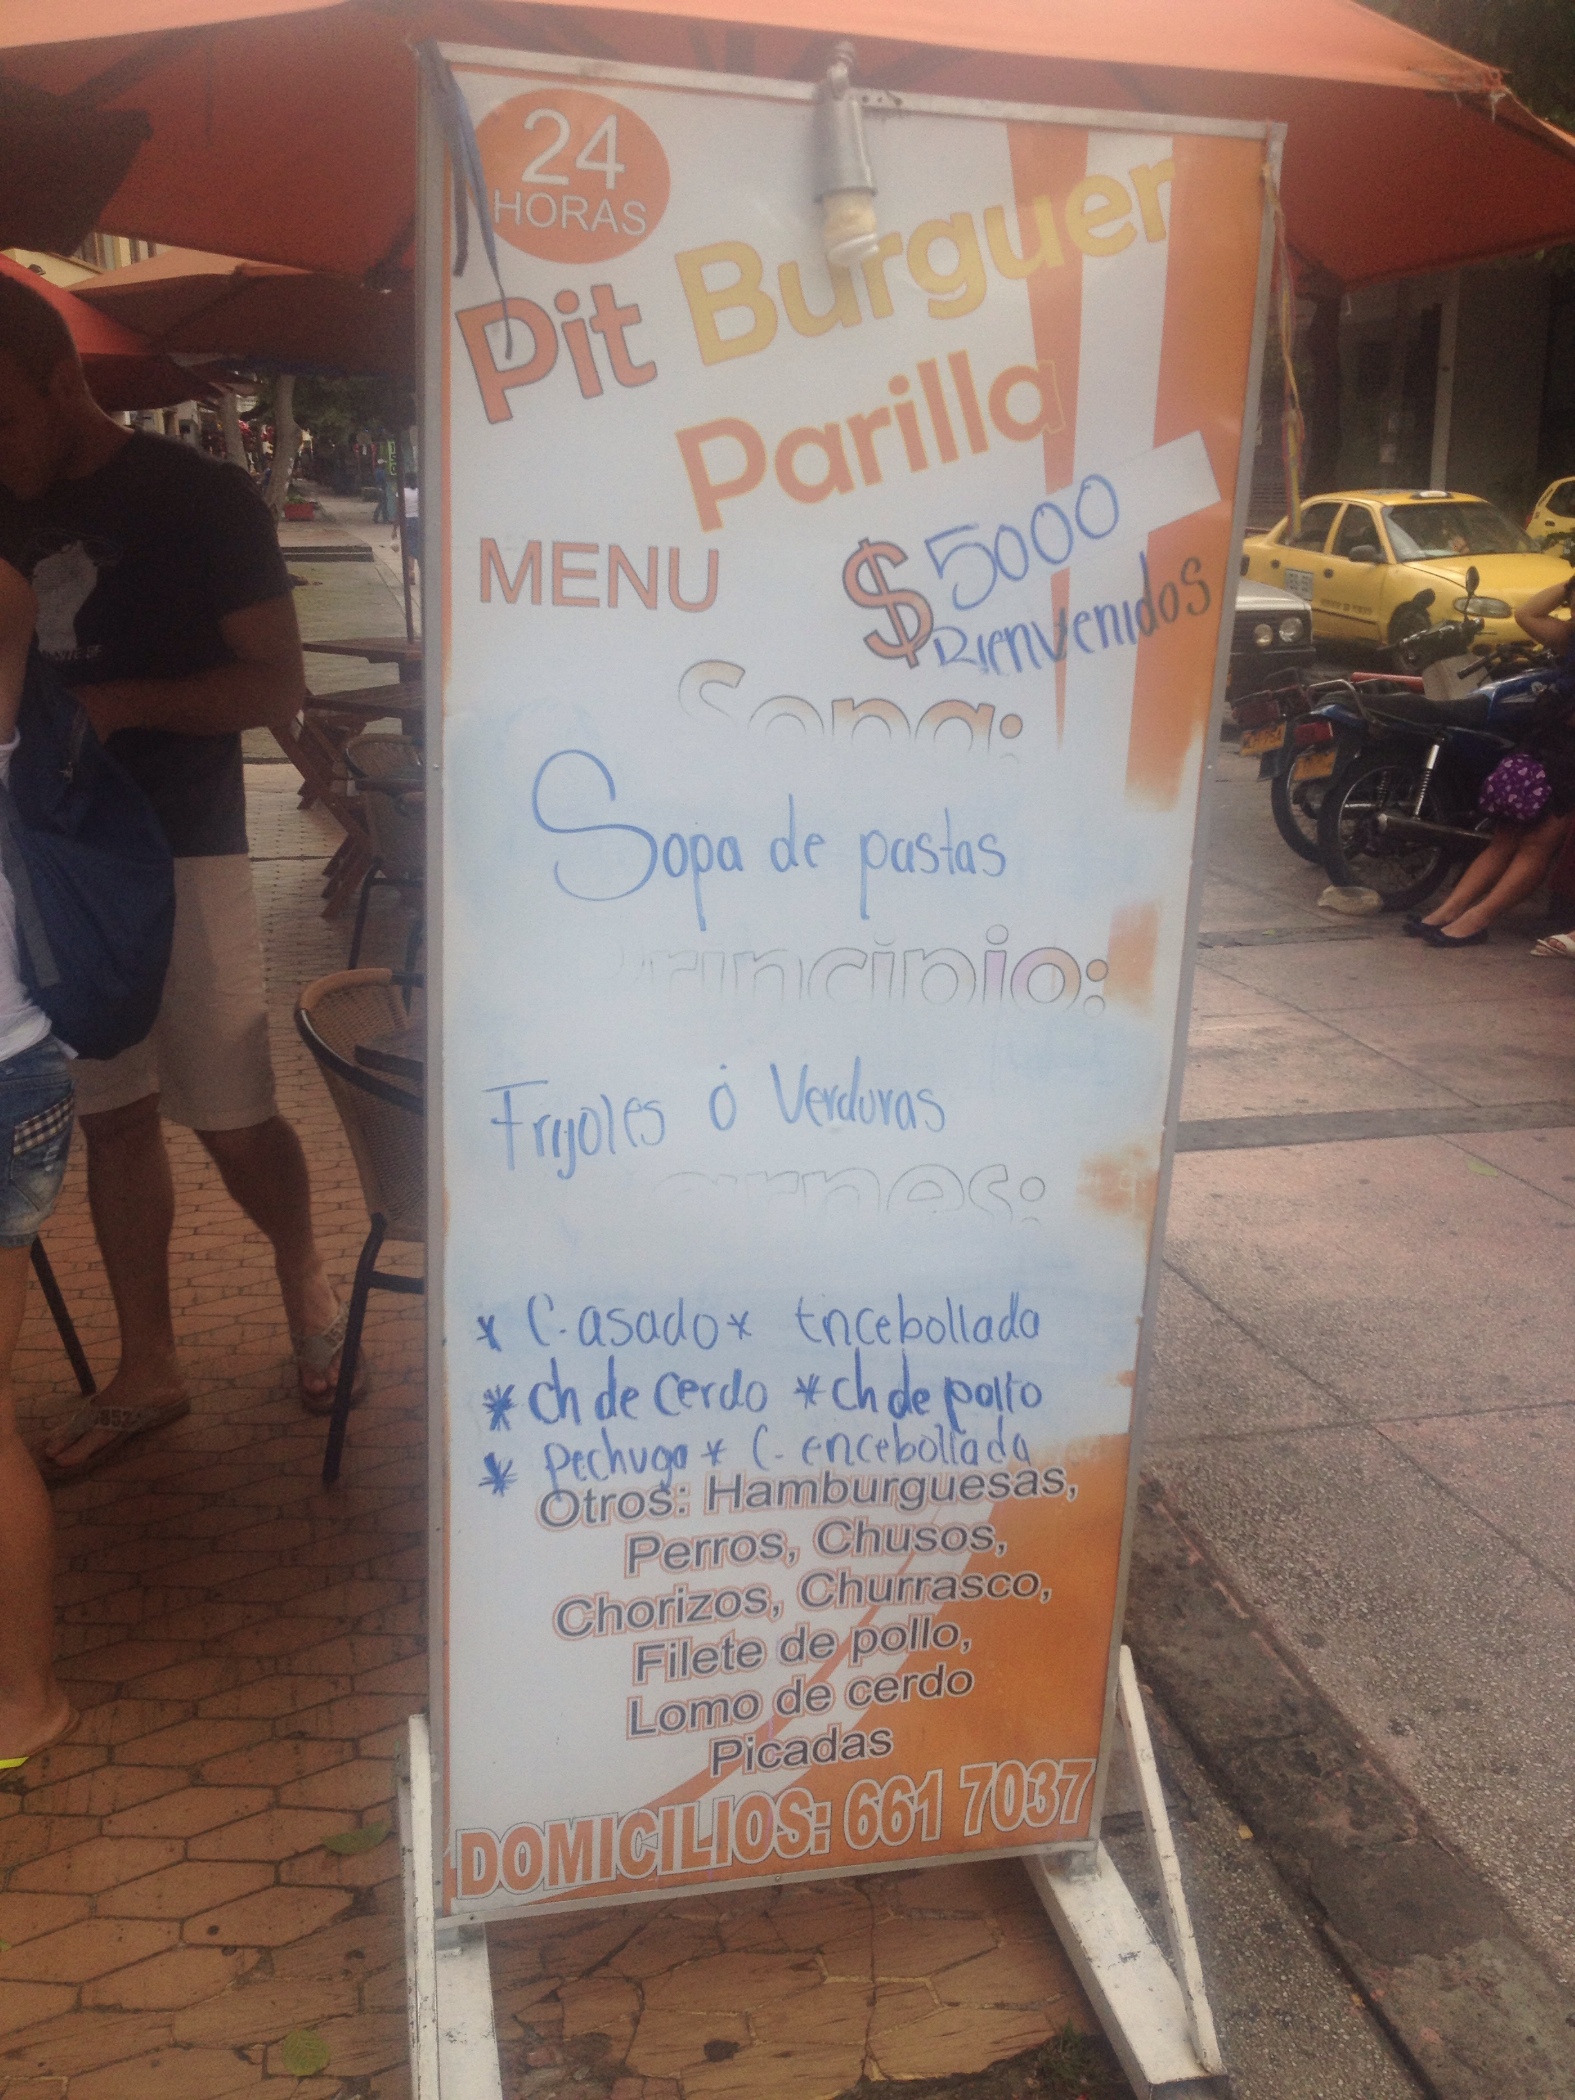 24
HORAS
Pit Burguer
Parilla
MENU
$ 5000
Bienvenidos
Sopa:
Sopa de pastas
Principio:
Frijoles ó Verduras
arnes:
* C. asado * Encebollada
* ch de cerdo * ch de pollo
* pechuga * C. encebollada
Otros: Hamburguesas,
Perros, Chusos,
Chorizos, Churrasco,
Filete de pollo,
Lomo de cerdo
Picadas
DOMICILIOS: 661 7037